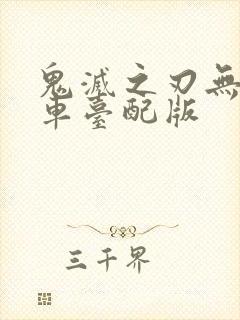 鬼滅之刃無
車臺配版
三千界